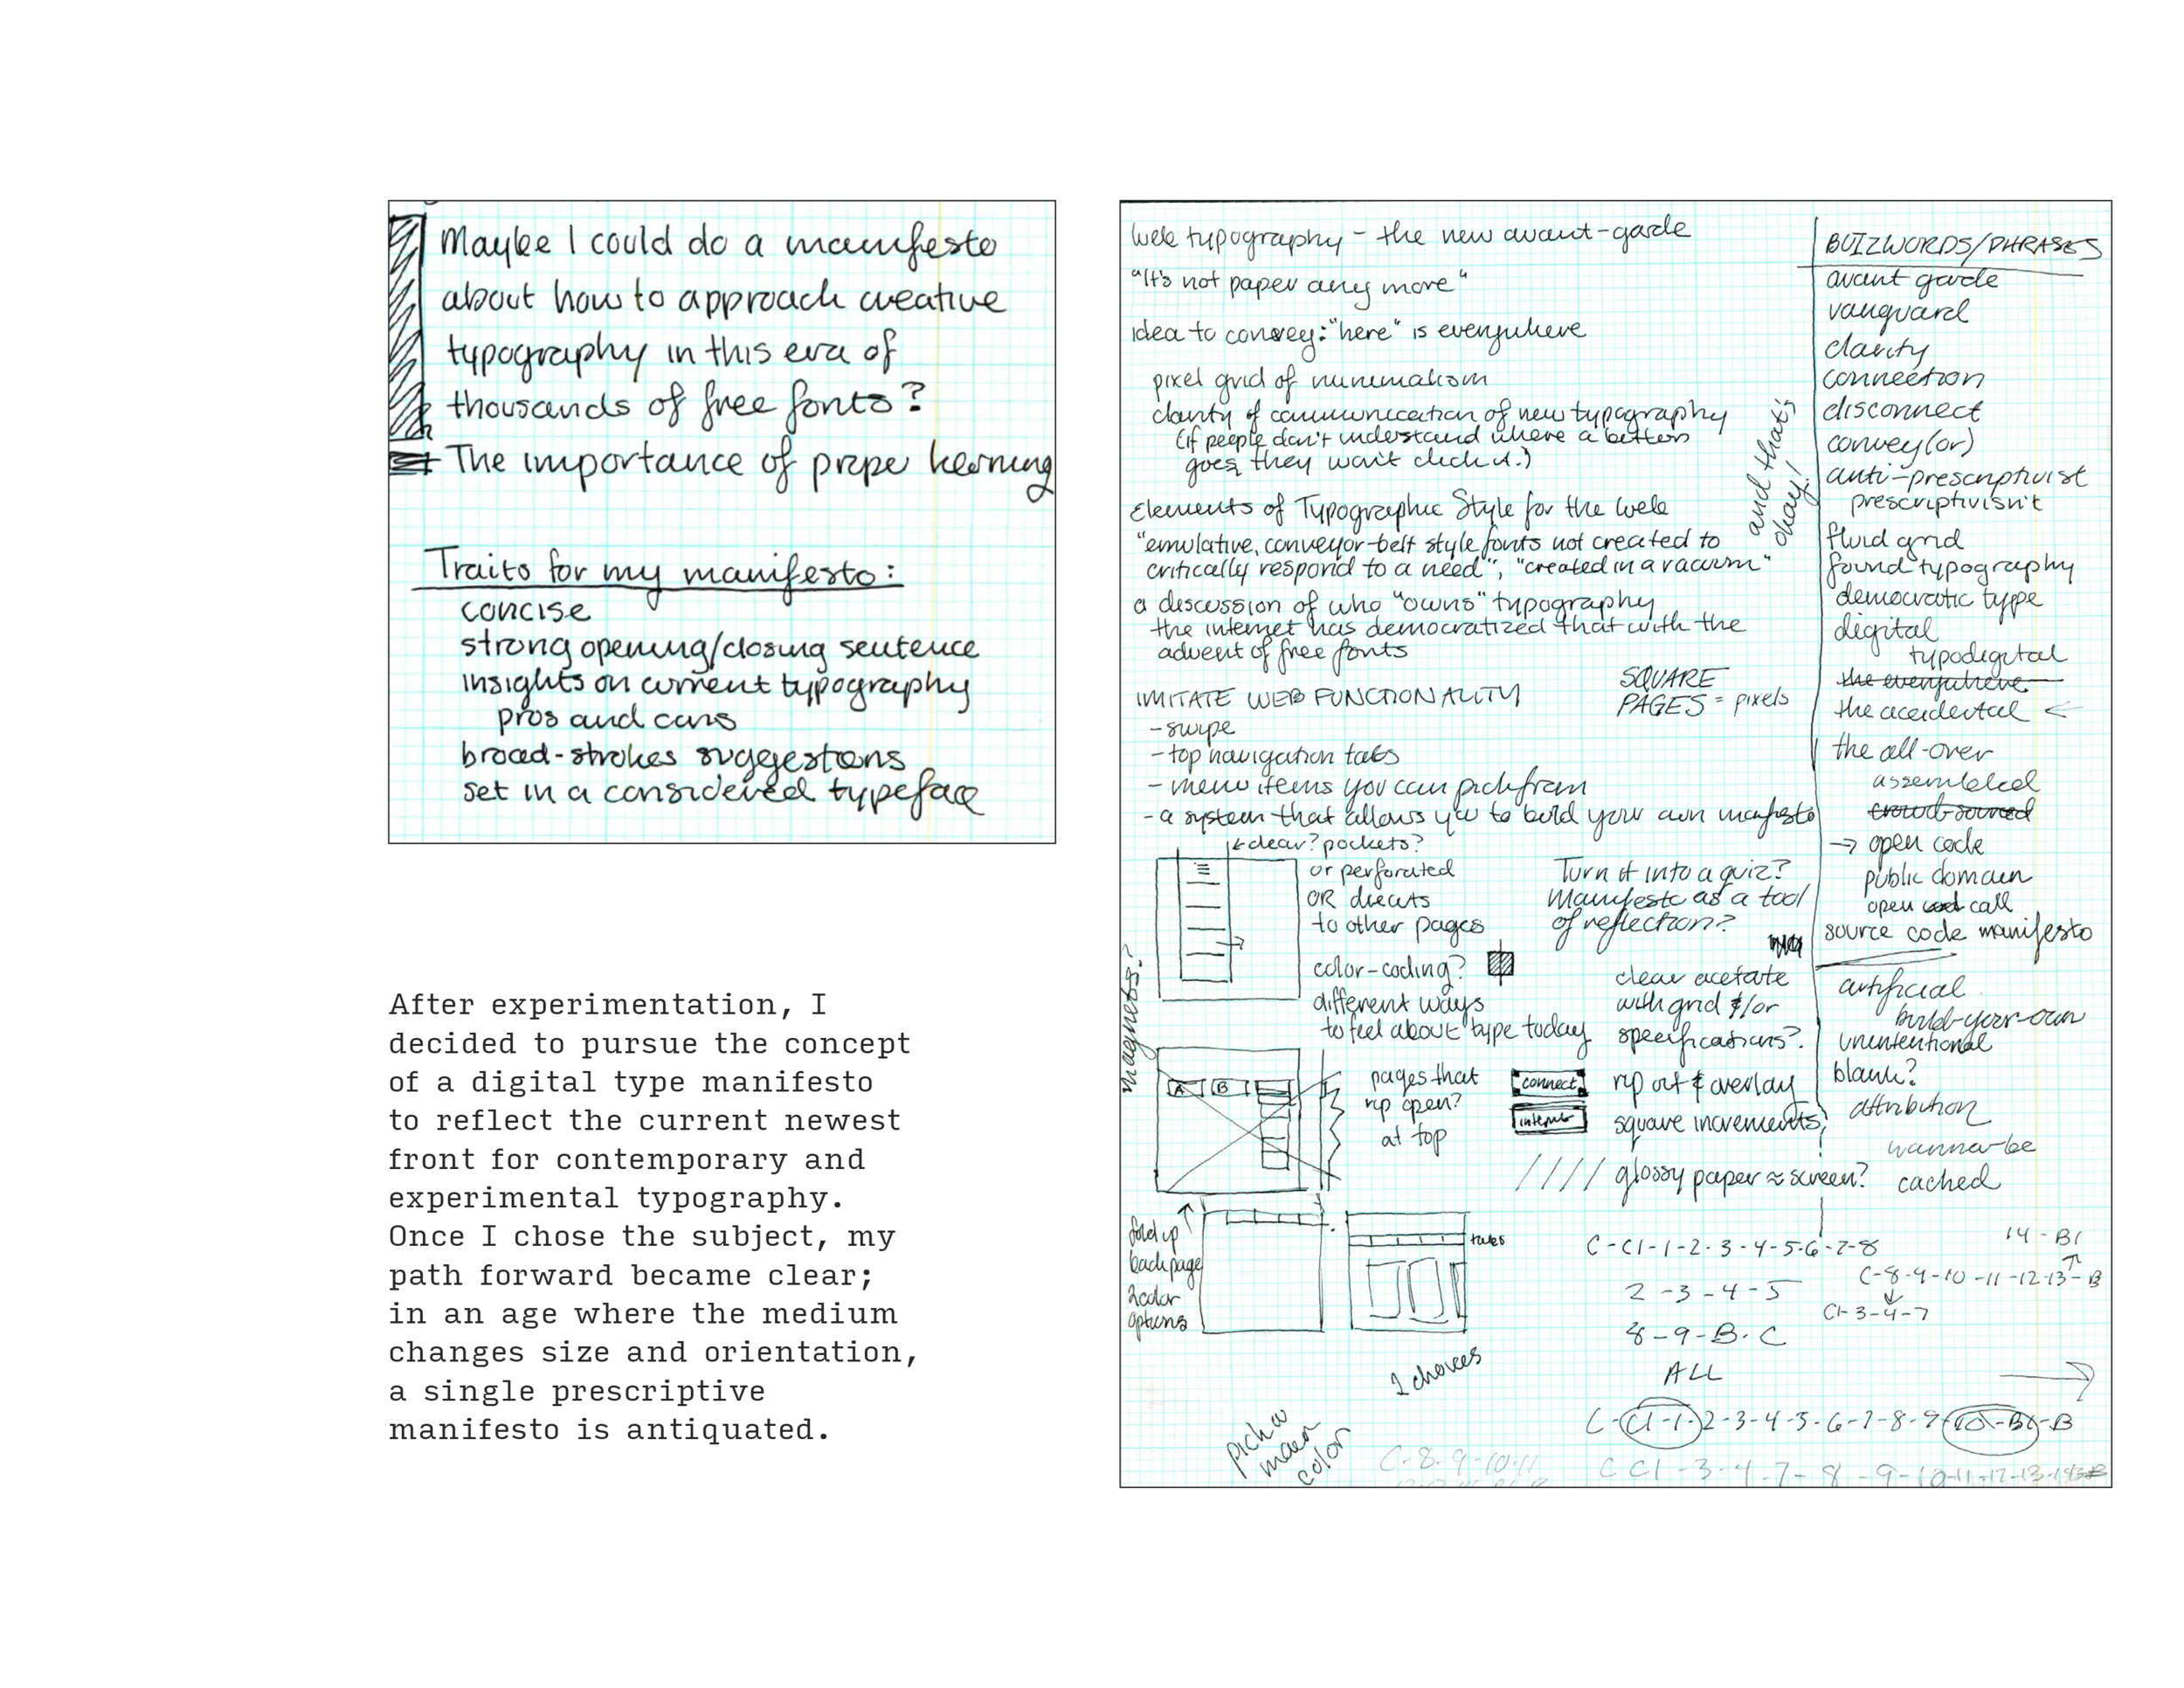 Maybe I could do a manifesto
about how to approach creative
typography in this era of
thousands of free fonts?
The importance of prope kerning
Traits for my manifesto:
concise
strong opening/closing sentence
insights on current typography
pros and cons
broad-strokes suggestions
set in a considered typeface
After experimentation, I
decided to pursue the concept
of a digital type manifesto
to reflect the current newest
front for contemporary and
experimental typography.
Once I chose the subject, my
path forward became clear;
in an age where the medium
changes size and orientation,
a single prescriptive
manifesto is antiquated.
web typography - the new avant-garde
"It's not paper any more"
idea to convey: "here" is everywhere
pixel grid of minimalism
clarity of communication of new typography
(if people don't understand where a button
goes, they won't click it.)
and that's
okay!
Elements of Typographic Style for the Web
"emulative, conveyor-belt style fonts not created to
critically respond to a need", "created in a vacuum"
a discussion of who "owns" typography
the internet has democratized that with the
advent of free fonts
IMITATE WEB FUNCTIONALITY
- swipe
- top navigation tabs
- menu items you can pick from
- a system that allows you to build your own manifesto
SQUARE
PAGES = pixels
clear? pockets?
or perforated
OR diecuts
to other pages
Turn it into a quiz?
Manifesto as a tool
of reflection?
color-coding?
different ways
to feel about type today
clear acetate
with grid &/or
specifications?
magnets?
A B
pages that
rip open?
at top
connect
rip out & overlay
square increments
//// glossy paper ≈ screen?
fold up
back page
2 color
options
tabs
2 choices
pick a
main
color
BUZZWORDS/PHRASES
avant garde
vanguard
clarity
connection
disconnect
convey(or)
anti-prescriptivist
prescriptivisn't
fluid grid
found typography
democratic type
digital
typodigital
the everywhere
the accidental ←
the all-over
assembled
crowd-sourced
→ open code
public domain
open call
source code manifesto
artificial
build-your-own
unintentional
blank?
attribution
wanna-be
cached
C-C1-1-2-3-4-5-6-7-8
14-B1
C-8-9-10-11-12-13-B
2-3-4-5
C1-3-4-7
8-9-B-C
ALL
C-C1-1-2-3-4-5-6-7-8-9-10-B1-B
C-8-9-10-11
C C1-3-4-7-8-9-10-11-12-13-14